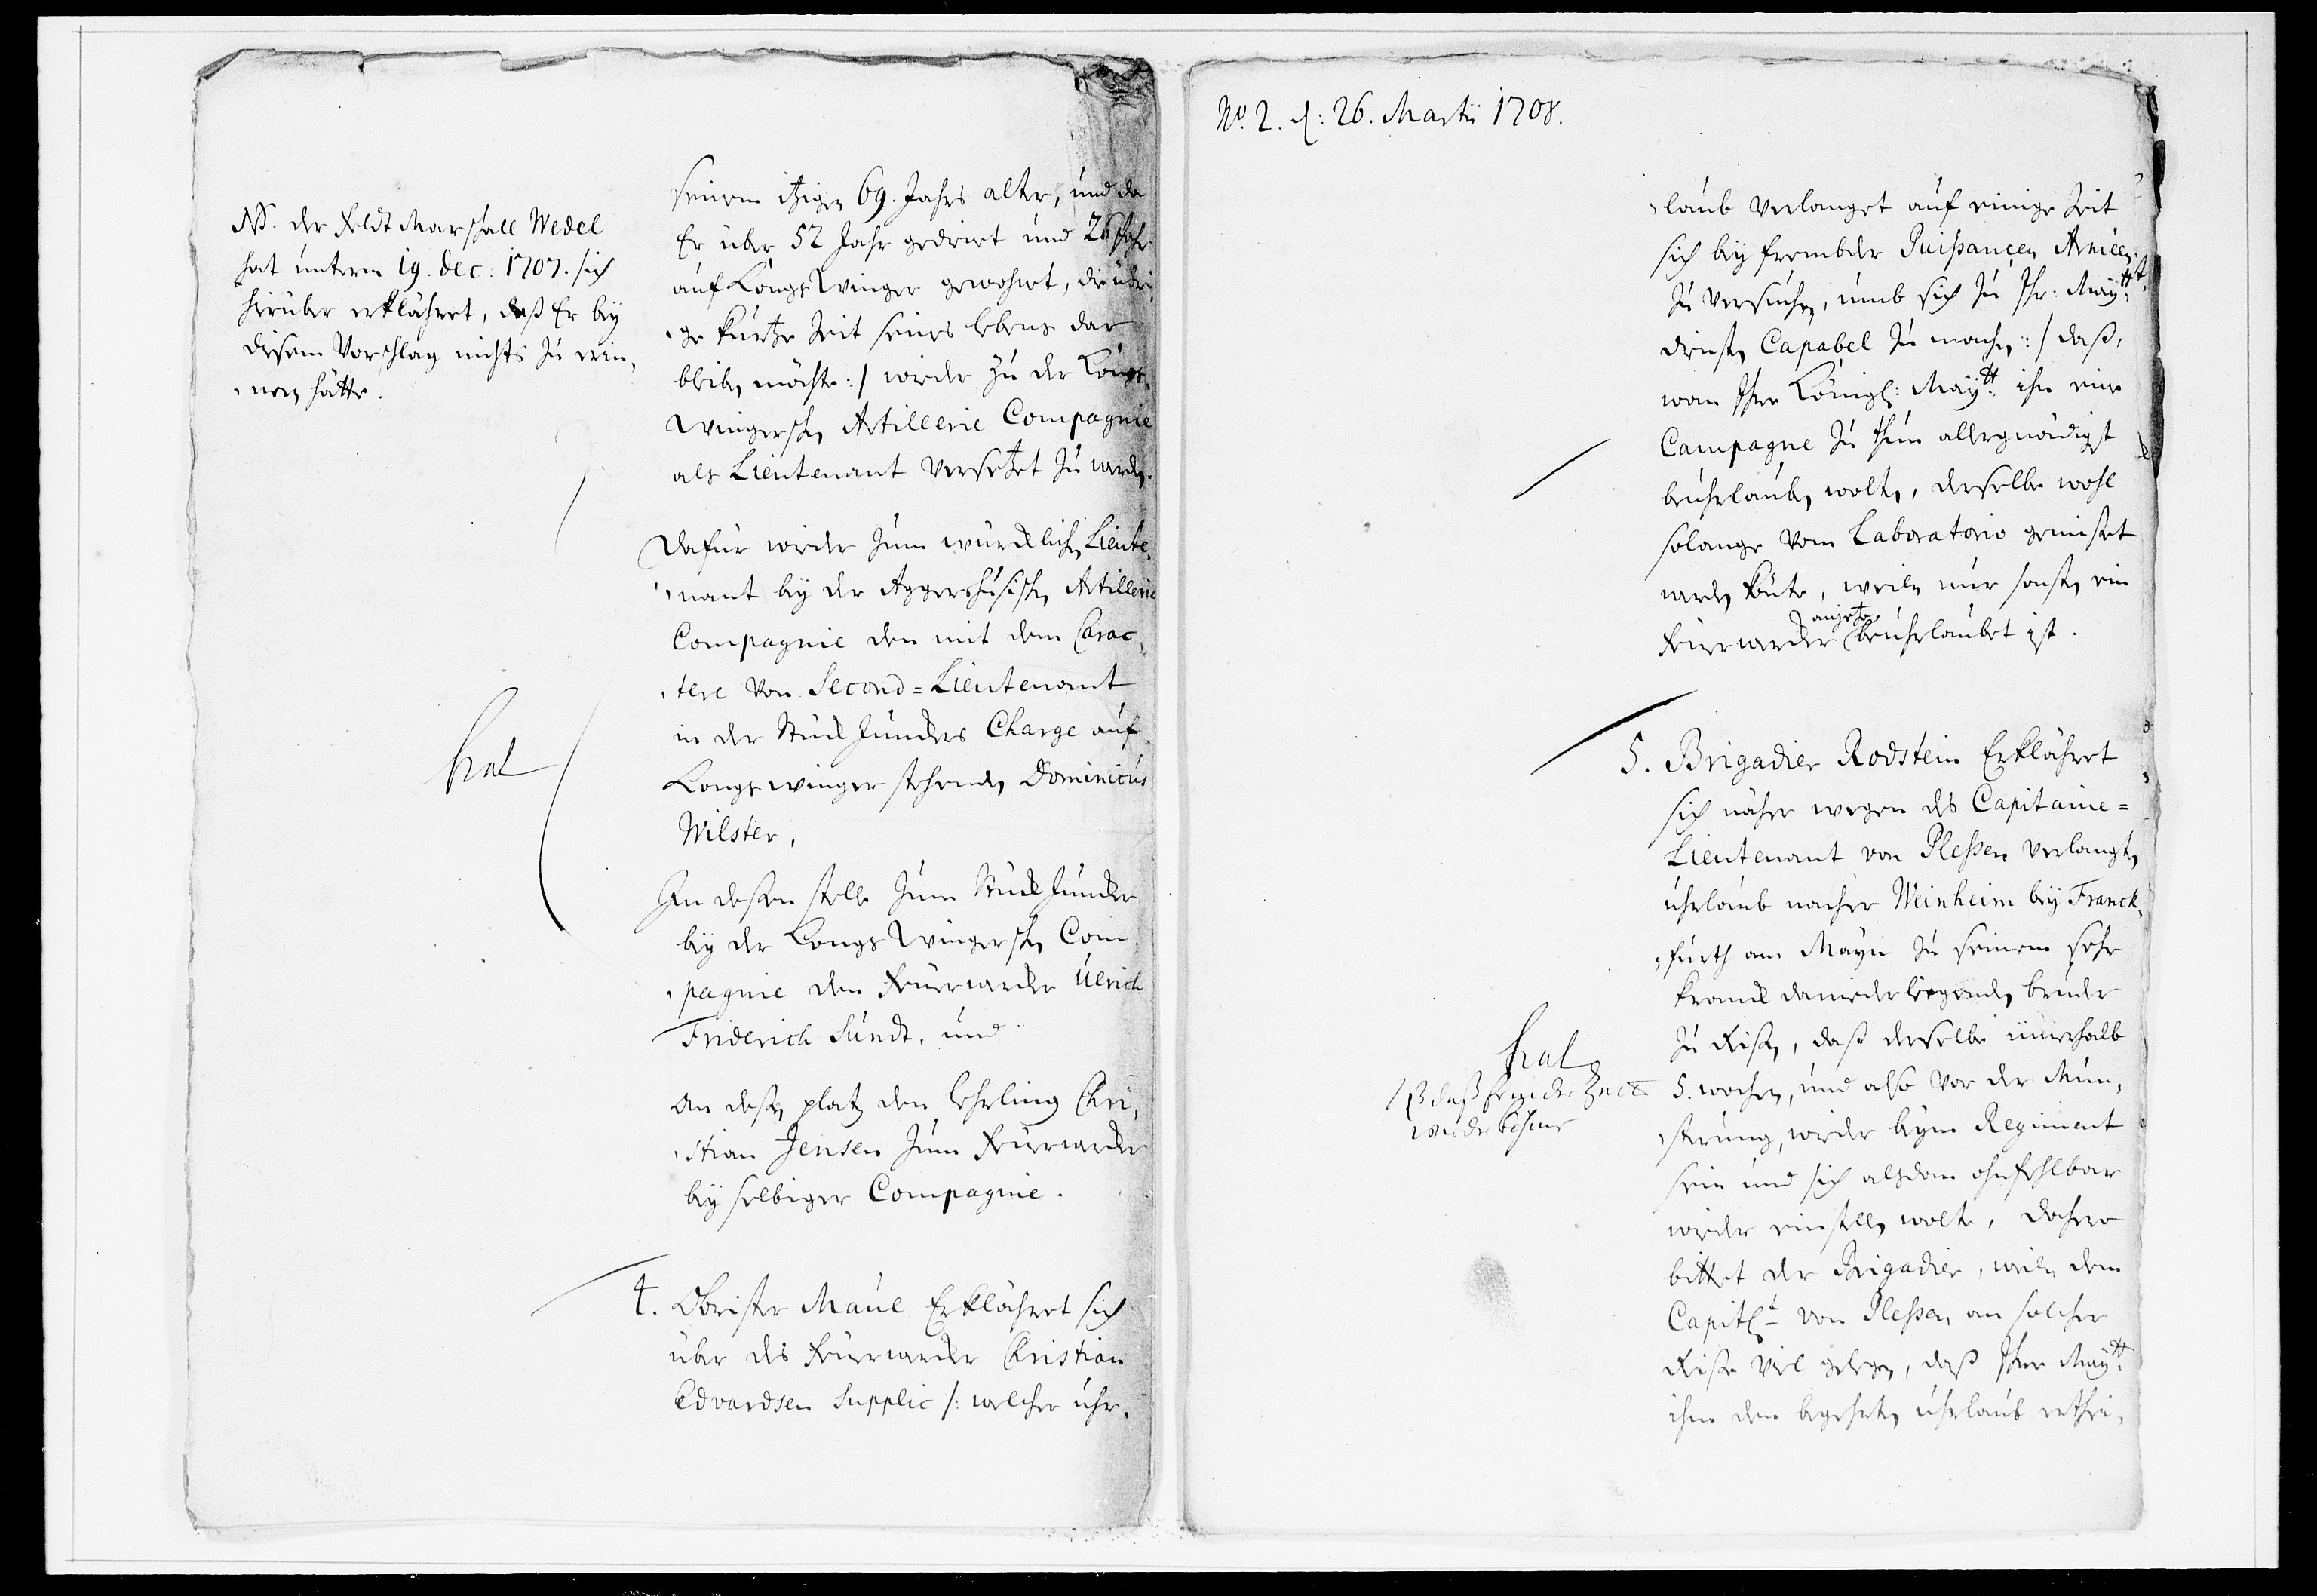 NB. der Feldt Marschall Wedel
hat unterm 19. Dec: 1707. sich
hierüber erklähret, daß Er beÿ
diesem Vorschlag nichts zu erin,
,nern hätte.
seinem itzigen 69. Jahrs alter, und da
Er über 52 Jahr gedienet und 26 Jahr
auf Kongswinger gewohnet, die übri,
,ge kurtze Zeit seines lebens dar
bleiben möchte :/ wieder zu der Kongs,
Wingerschen Artillerie Compagnie
als Lieutenant versetzet zu werden.
Dafür wieder zum würcklichen Lieute,
,nant beÿ der Aggershusischen Artillerie
Compagnie den mit dem Carac,
,tere von Second=Lieutenant
in der Stück Junckers Charge auf
Kongswinger stehenden Dominicus
Wilster.
hat
In deßen stelle zum Stück Juncker
beÿ der Kongs Wingerschen Com,
,pagnie den Feuerwercker Ulrich
Friderich Sundt, und
An deßen platz den lehrling Chri,
,stian Jensen zum Feuerwercker
beÿ selbiger Compagnie.
4. Obrister Maul Erklähret sich
über des Feuerwercker Christian
Edvardsen Supplic /: welcher uhr,
No. 2. d: 26. Martii 1708.
,laub verlanget auf einige Zeit
sich beÿ frembder Puissancen Armeen
zu versuchen, umb sich zu Ihr: Maÿtt:
diensten Capabel zu machen :/ daß,
wan Ihre Königl: Maÿtt: ihn eine
Campagne zu thun allergnädigst
beuhrlauben wolten, derselbe wohl
solange vom Laboratorio gemißet
werden könte, weilen nur sonsten ein
Feuerwercker anjetzo beuhrlaubet ist.
5. Brigadier Rodstein Erklähret
sich näher wegen des Capitaine=
Lieutenant von Pleßen verlangten
uhrlaub nacher Weinheim beÿ Franck,
,furth am Maÿn zu seinem sehr
kranck daniederliegenden bruder
zu Reisen, daß derselbe innerhalb
5. wochen, und also vor der Mun,
,sterung, wieder beÿm Regiment
sein und sich alsdan ohnfehlbar
wieder einstellen wolte, dahero
bittet der Brigadier, weilen dem
Capitlt von Pleßen an solcher
Reise viel gelegen, daß Ihre Maÿtt:
ihm den begehrten uhrlaub erthei,
hat